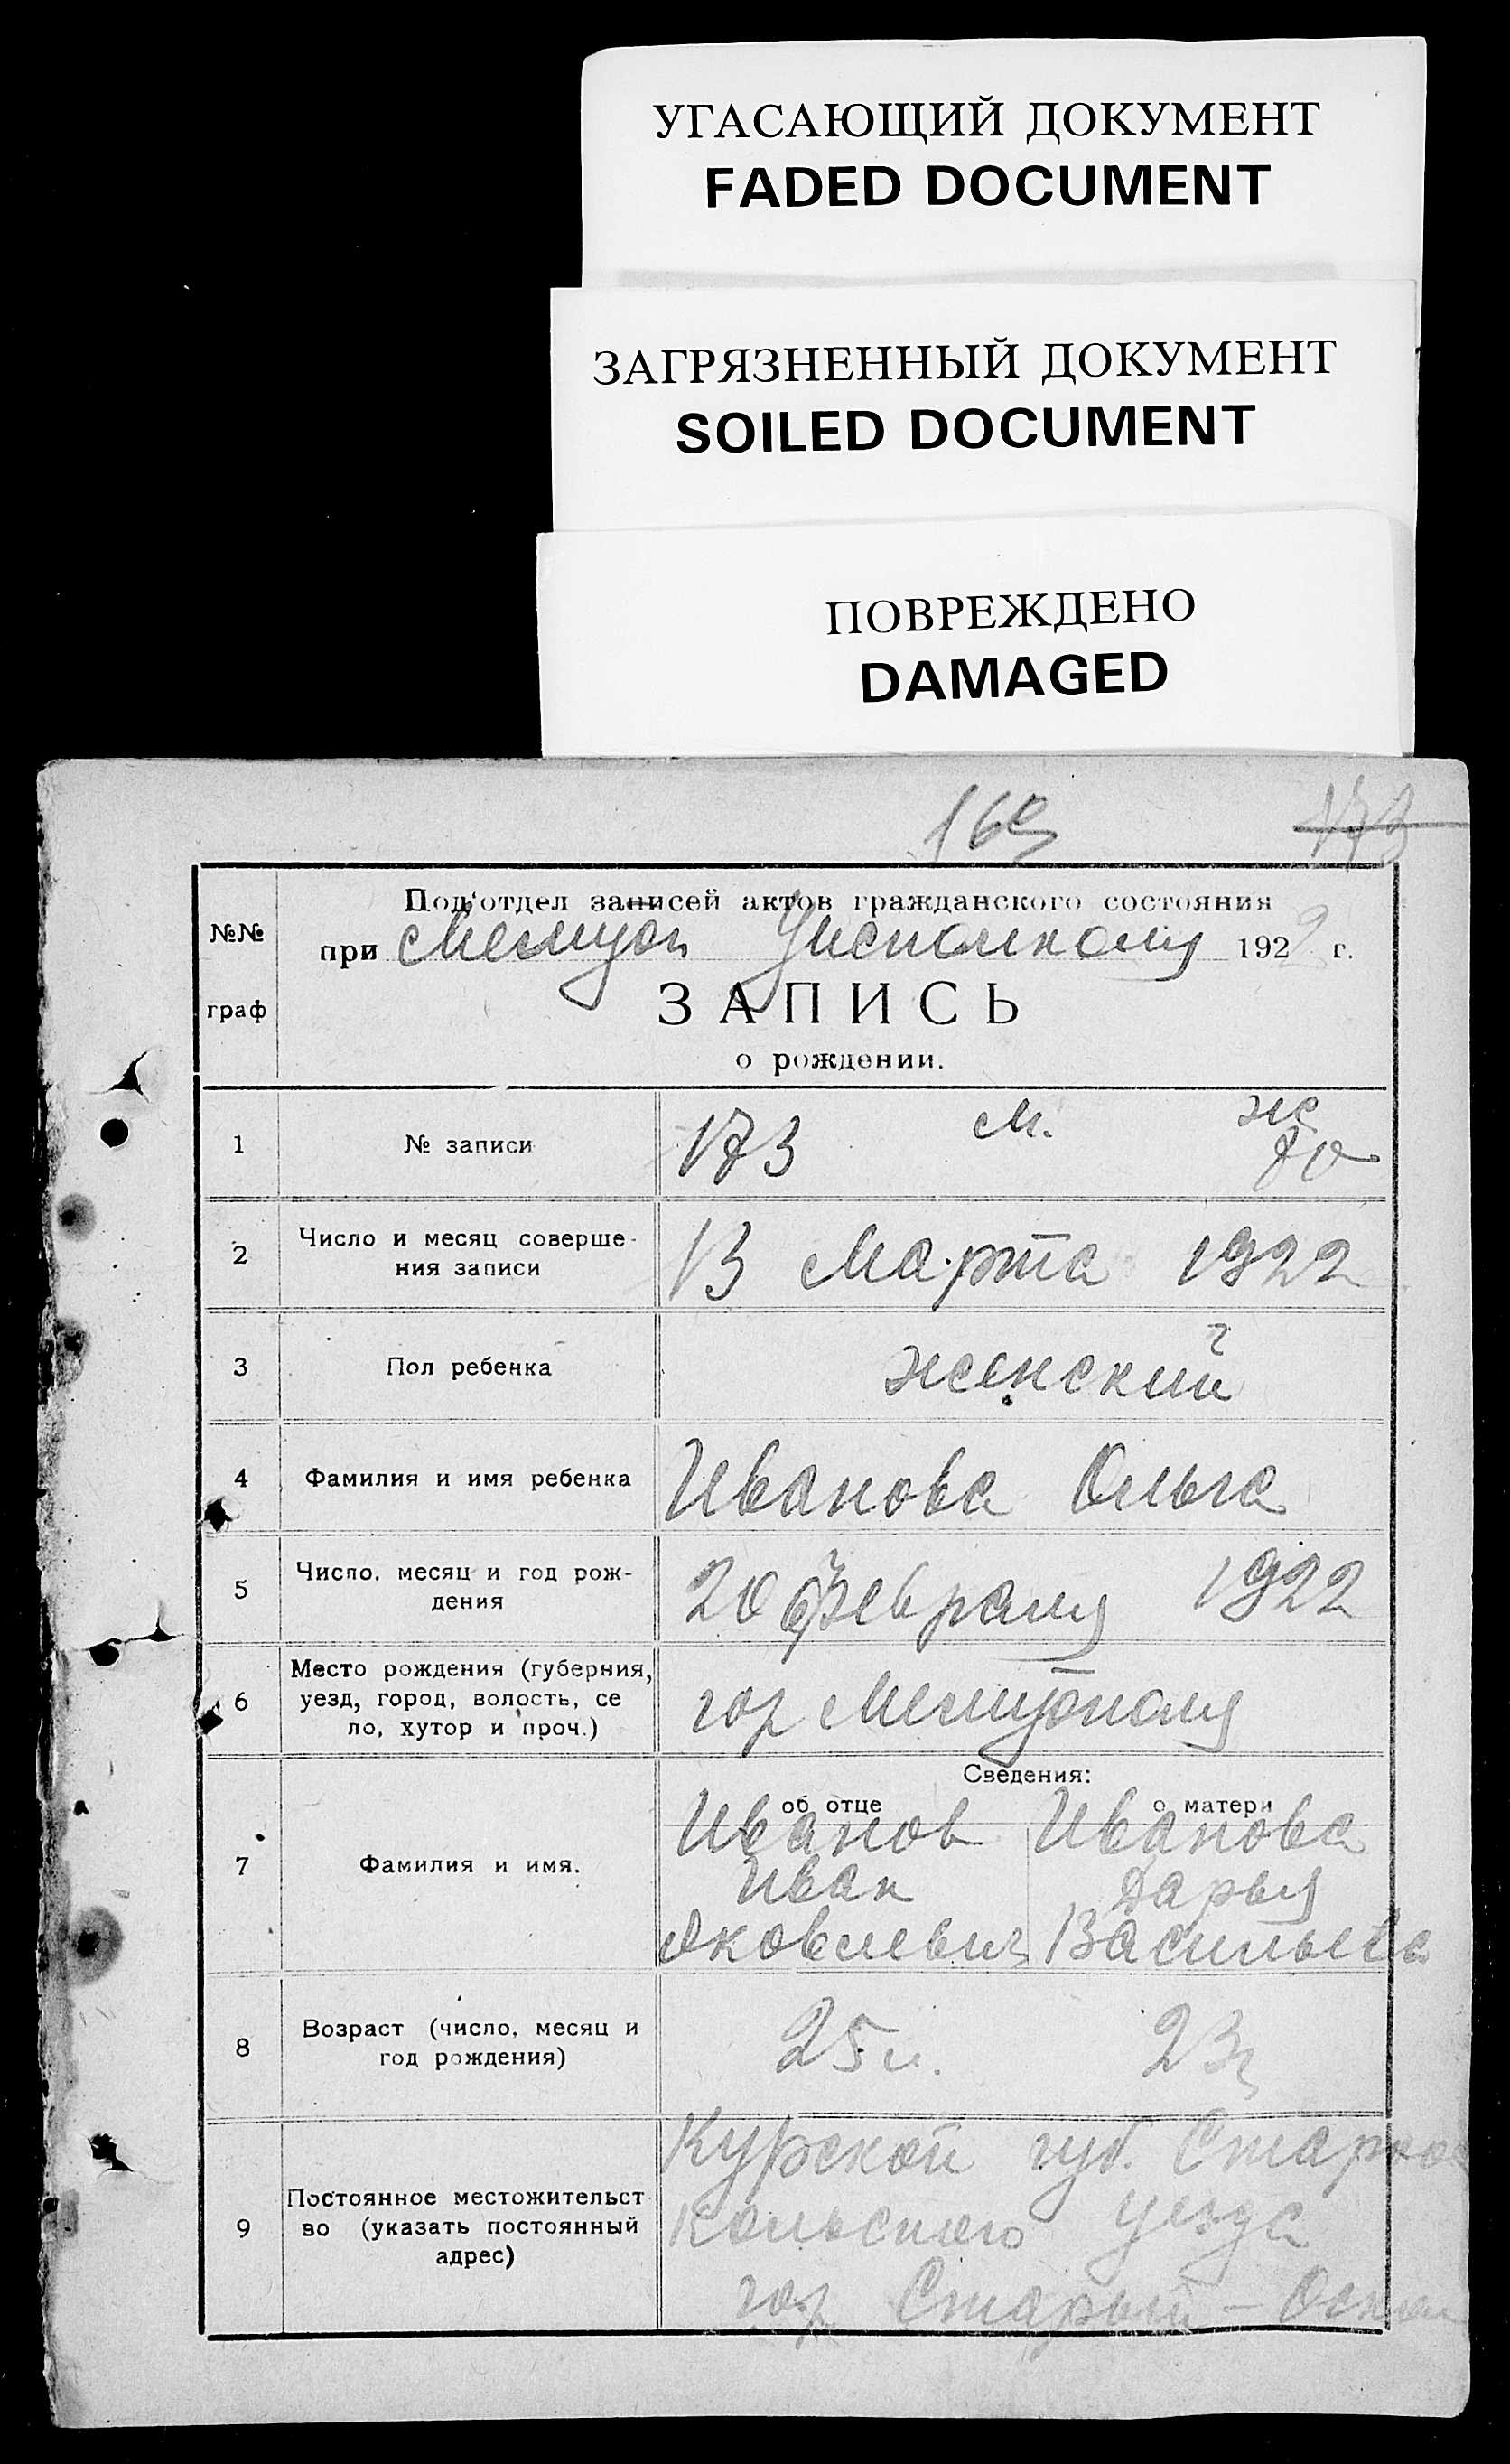 УГАСАЮЩИЙ ДОКУМЕНТ
FADED DOCUMENT
ЗАГРЯЗНЕННЫЙ ДОКУМЕНТ
SOILED DOCUMENT
ПОВРЕЖДЕНО
DAMAGED
173
№№
граф
Под'отдел записей актов гражданского состояния
при Мелитуон Уисполкому 192 г.
ЗАПИСЬ
о рождении.
1 № записи 173 м. ж
70
2 Число и месяц соверше-
ния записи 13 Марта 1922
3 Пол ребенка женский
4 Фамилия и имя ребенка Иванова Ольга
5 Число, месяц и год рож-
дения 20 февраля 1922
6 Место рождения (губерния,
уезд, город, волость, се
ло, хутор и проч.) гор
Сведения:
об отце о матери
7 Фамилия и имя. Иванов Иванова
Иван Дарья
Яковлевич
8 Возраст (число, месяц и
год рождения) 25 л. 23
9 Постоянное местожительст
во (указать постоянный
адрес)
Курской губ. Староос
кольского уезда
гор Старый-Оскол